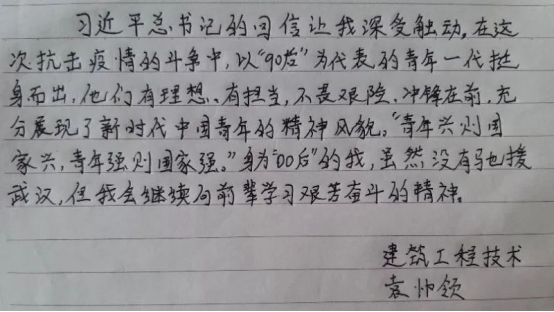 习近平总书记的回信让我深受触动。在这
次抗击疫情的斗争中,以“90后”为代表的青年一代挺
身而出,他们有理想、有担当,不畏艰险、冲锋在前,充
分展现了新时代中国青年的精神风貌。“青年兴则国
家兴,青年强则国家强。”身为“00后”的我,虽然没有驰援
武汉,但我会继续向前辈学习艰苦奋斗的精神。
建筑工程技术
袁帅领